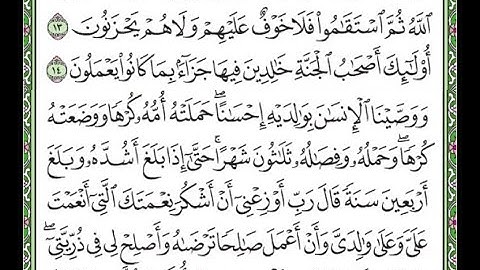 ٱللَّهُ ثُمَّ ٱسْتَقَٰمُوا۟ فَلَا خَوْفٌ عَلَيْهِمْ وَلَا هُمْ يَحْزَنُونَ ١٣
أُو۟لَٰٓئِكَ أَصْحَٰبُ ٱلْجَنَّةِ خَٰلِدِينَ فِيهَا جَزَآءًۢ بِمَا كَانُوا۟ يَعْمَلُونَ ١٤
وَوَصَّيْنَا ٱلْإِنسَٰنَ بِوَٰلِدَيْهِ إِحْسَٰنًا ۖ حَمَلَتْهُ أُمُّهُۥ كُرْهًا وَوَضَعَتْهُ
كُرْهًا ۖ وَحَمْلُهُۥ وَفِصَٰلُهُۥ ثَلَٰثُونَ شَهْرًا ۚ حَتَّىٰٓ إِذَا بَلَغَ أَشُدَّهُۥ وَبَلَغَ
أَرْبَعِينَ سَنَةً قَالَ رَبِّ أَوْزِعْنِىٓ أَنْ أَشْكُرَ نِعْمَتَكَ ٱلَّتِىٓ أَنْعَمْتَ
عَلَىَّ وَعَلَىٰ وَٰلِدَىَّ وَأَنْ أَعْمَلَ صَٰلِحًا تَرْضَىٰهُ وَأَصْلِحْ لِى فِى ذُرِّيَّتِىٓ ۖ